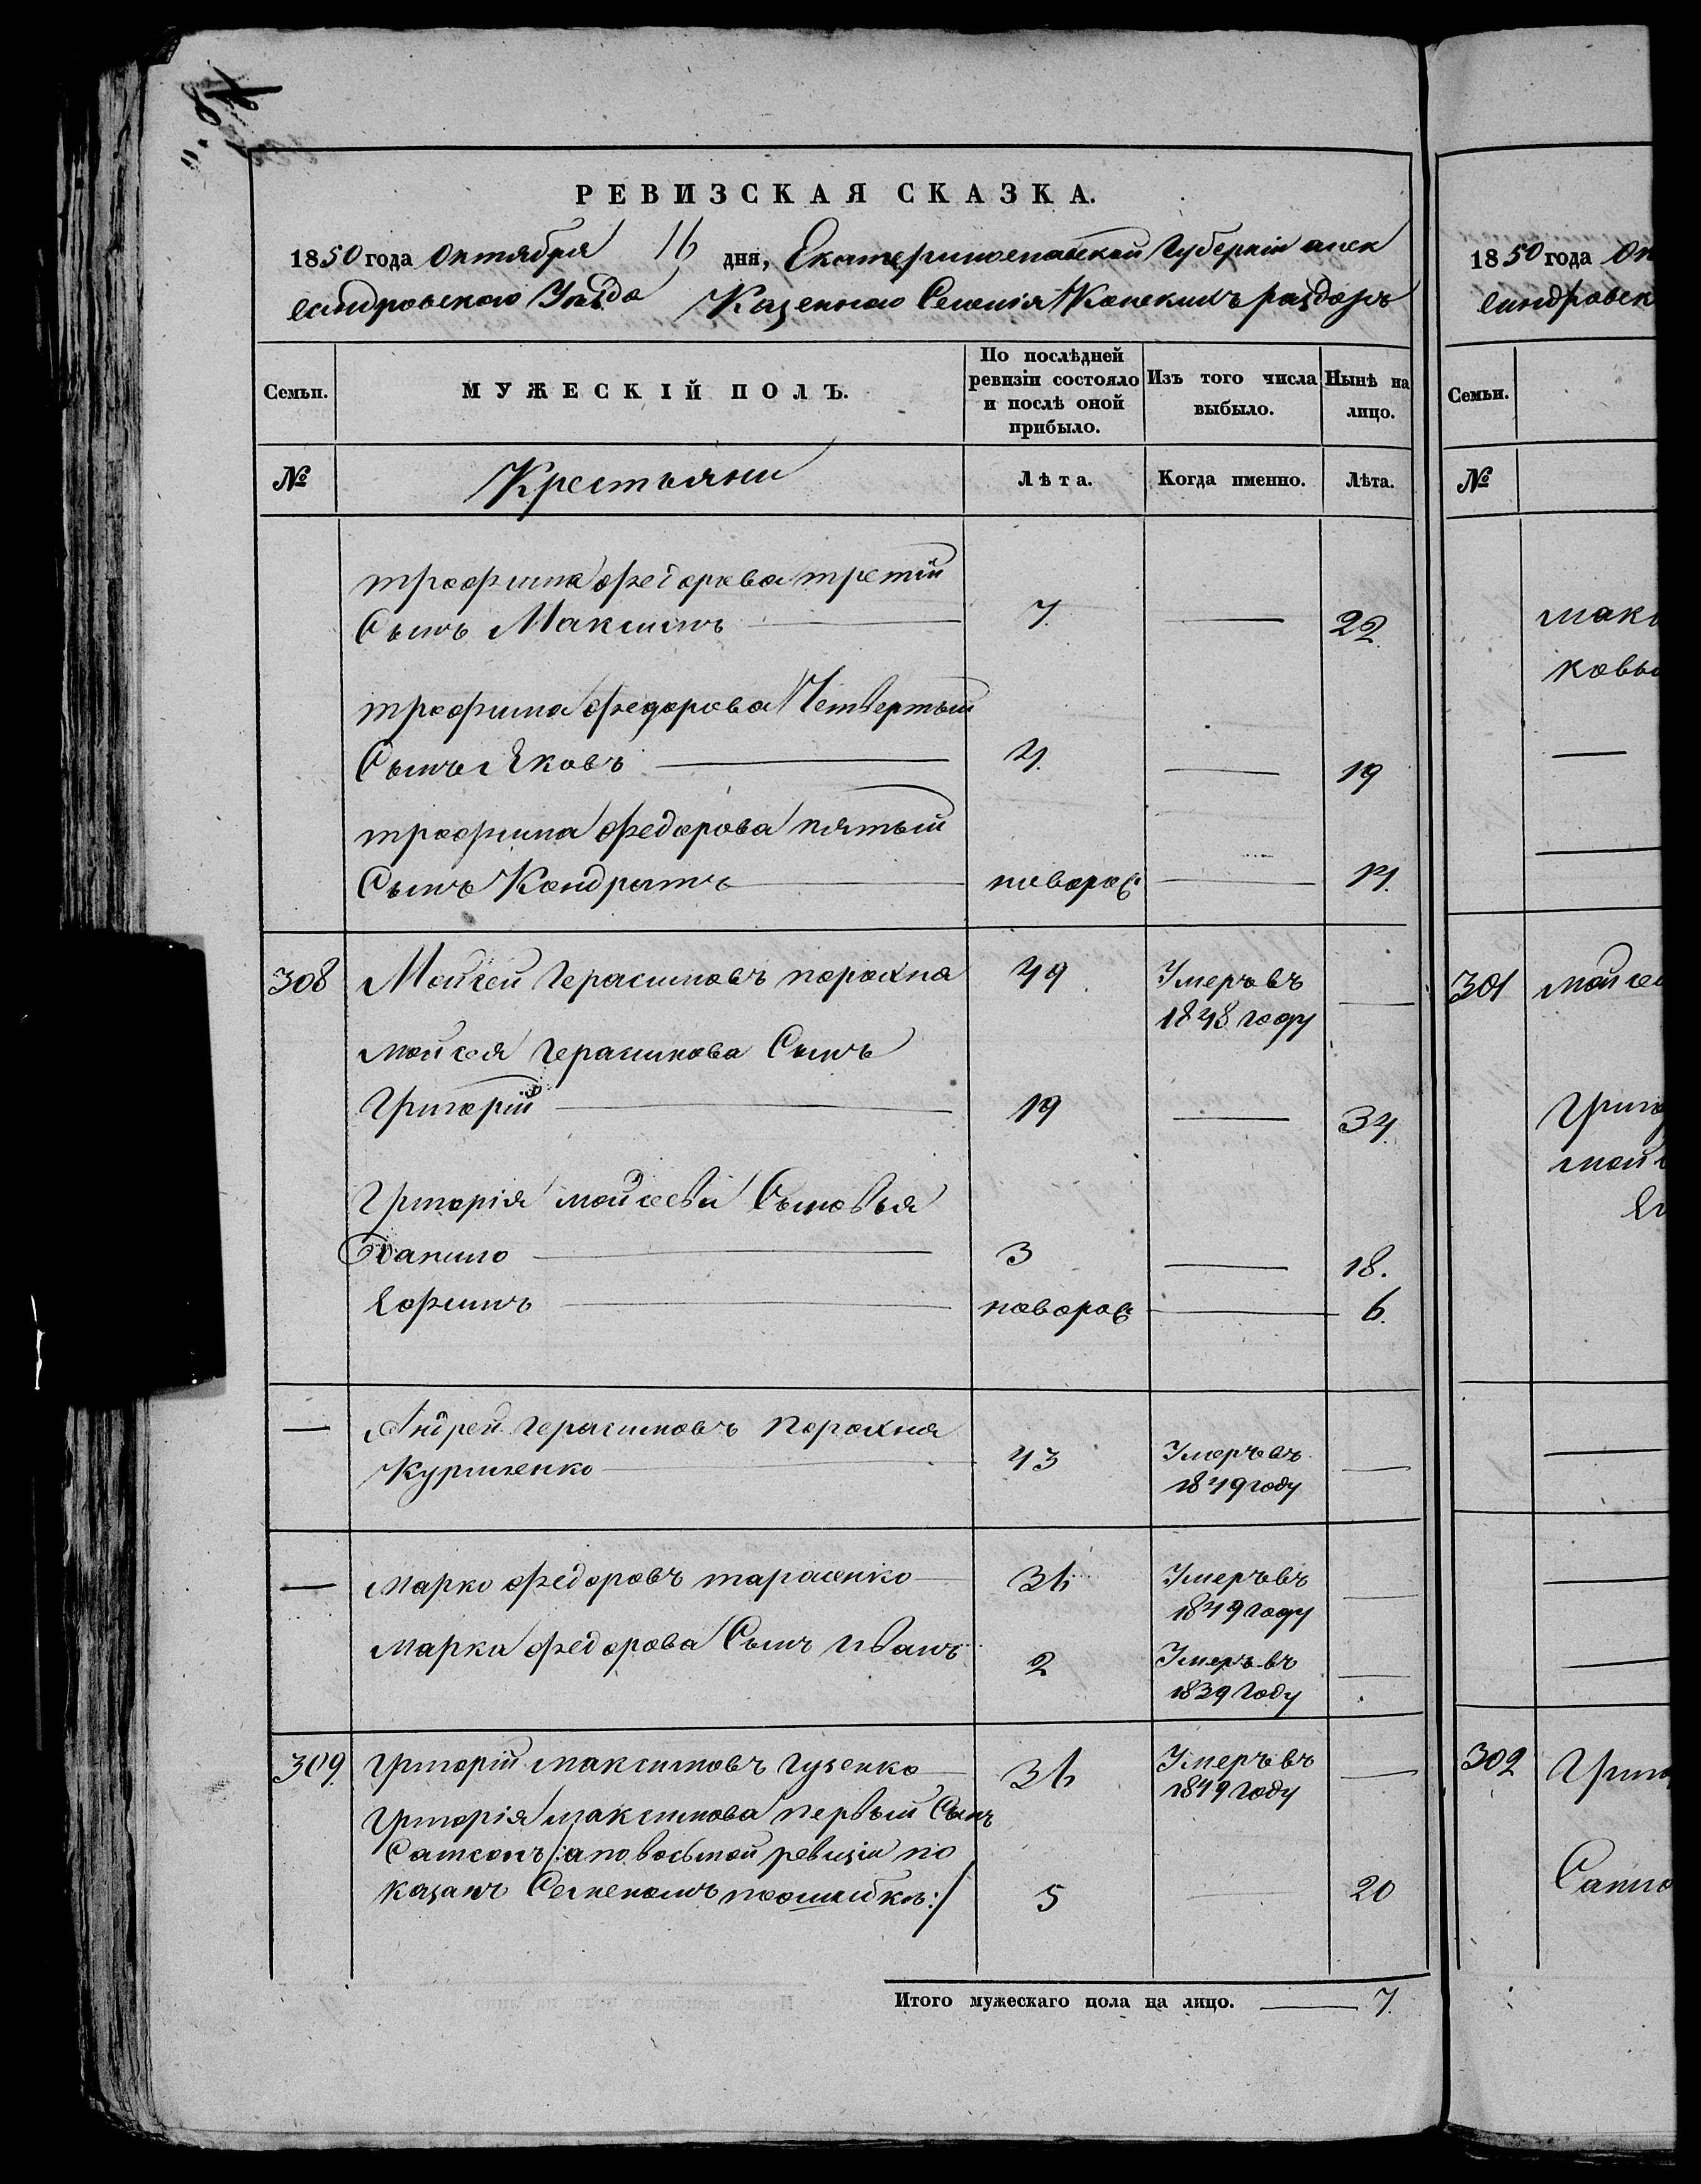 РЕВИЗСКАЯ СКАЗКА.
1850 года Октября 16 дня, Екатеринославской Губерніи алек
сандровского Уезда Казенного Селенія Конскихъ раздоръ
Семьи. МУЖЕСКІЙ ПОЛЪ. По послѣдней ревизіи состояло и послѣ оной прибыло. Изъ того числа выбыло. Нынѣ на лицо.
№ Крестьяни Лѣта. Когда именно. Лѣта.
трофима федорова третій
Сынъ Максимъ 7. 22
трофима федорова Четвертый
Сынъ Яковъ 4. 19
трофима федорова пятый
Сынъ Кондратъ новорож 14.
308 Мойсей Герасимовъ порохна 49 Умеръ въ
1848 году
мойсея герасимова Сынъ
Григорій 19 34
Григорія мойсеева Сыновья
Данило 3 18.
Ефимъ новорож 6.
— Андрей герасимовъ порохня
Куриленко 43 Умеръ въ
1849 году
— марко федоровъ тарасенко 36 Умеръ въ
1849 году
марка федорова Сынъ иванъ 2 Умеръ въ
1839 году
309. Григорій максимовъ гузенко 36 Умеръ въ
1849 году
Григорія максимова первый Сынъ
Самсонъ /: а по восьмой ревизіи по
казанъ Семеномъ поошибкѣ :/ 5 20
Итого мужескаго пола на лицо. 7.
1850 года Ок
сандровск
Семьи.
№
макс
ковы
301 мойсе
Григо
мой
Еф
302 Григо
Самсо